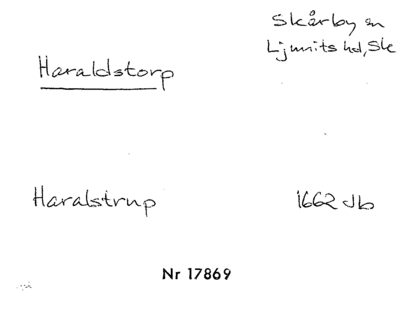 Skårby sn
Ljunits hd, Sk
Haraldstorp
Haralstrup 1662 Jb
Nr 17869